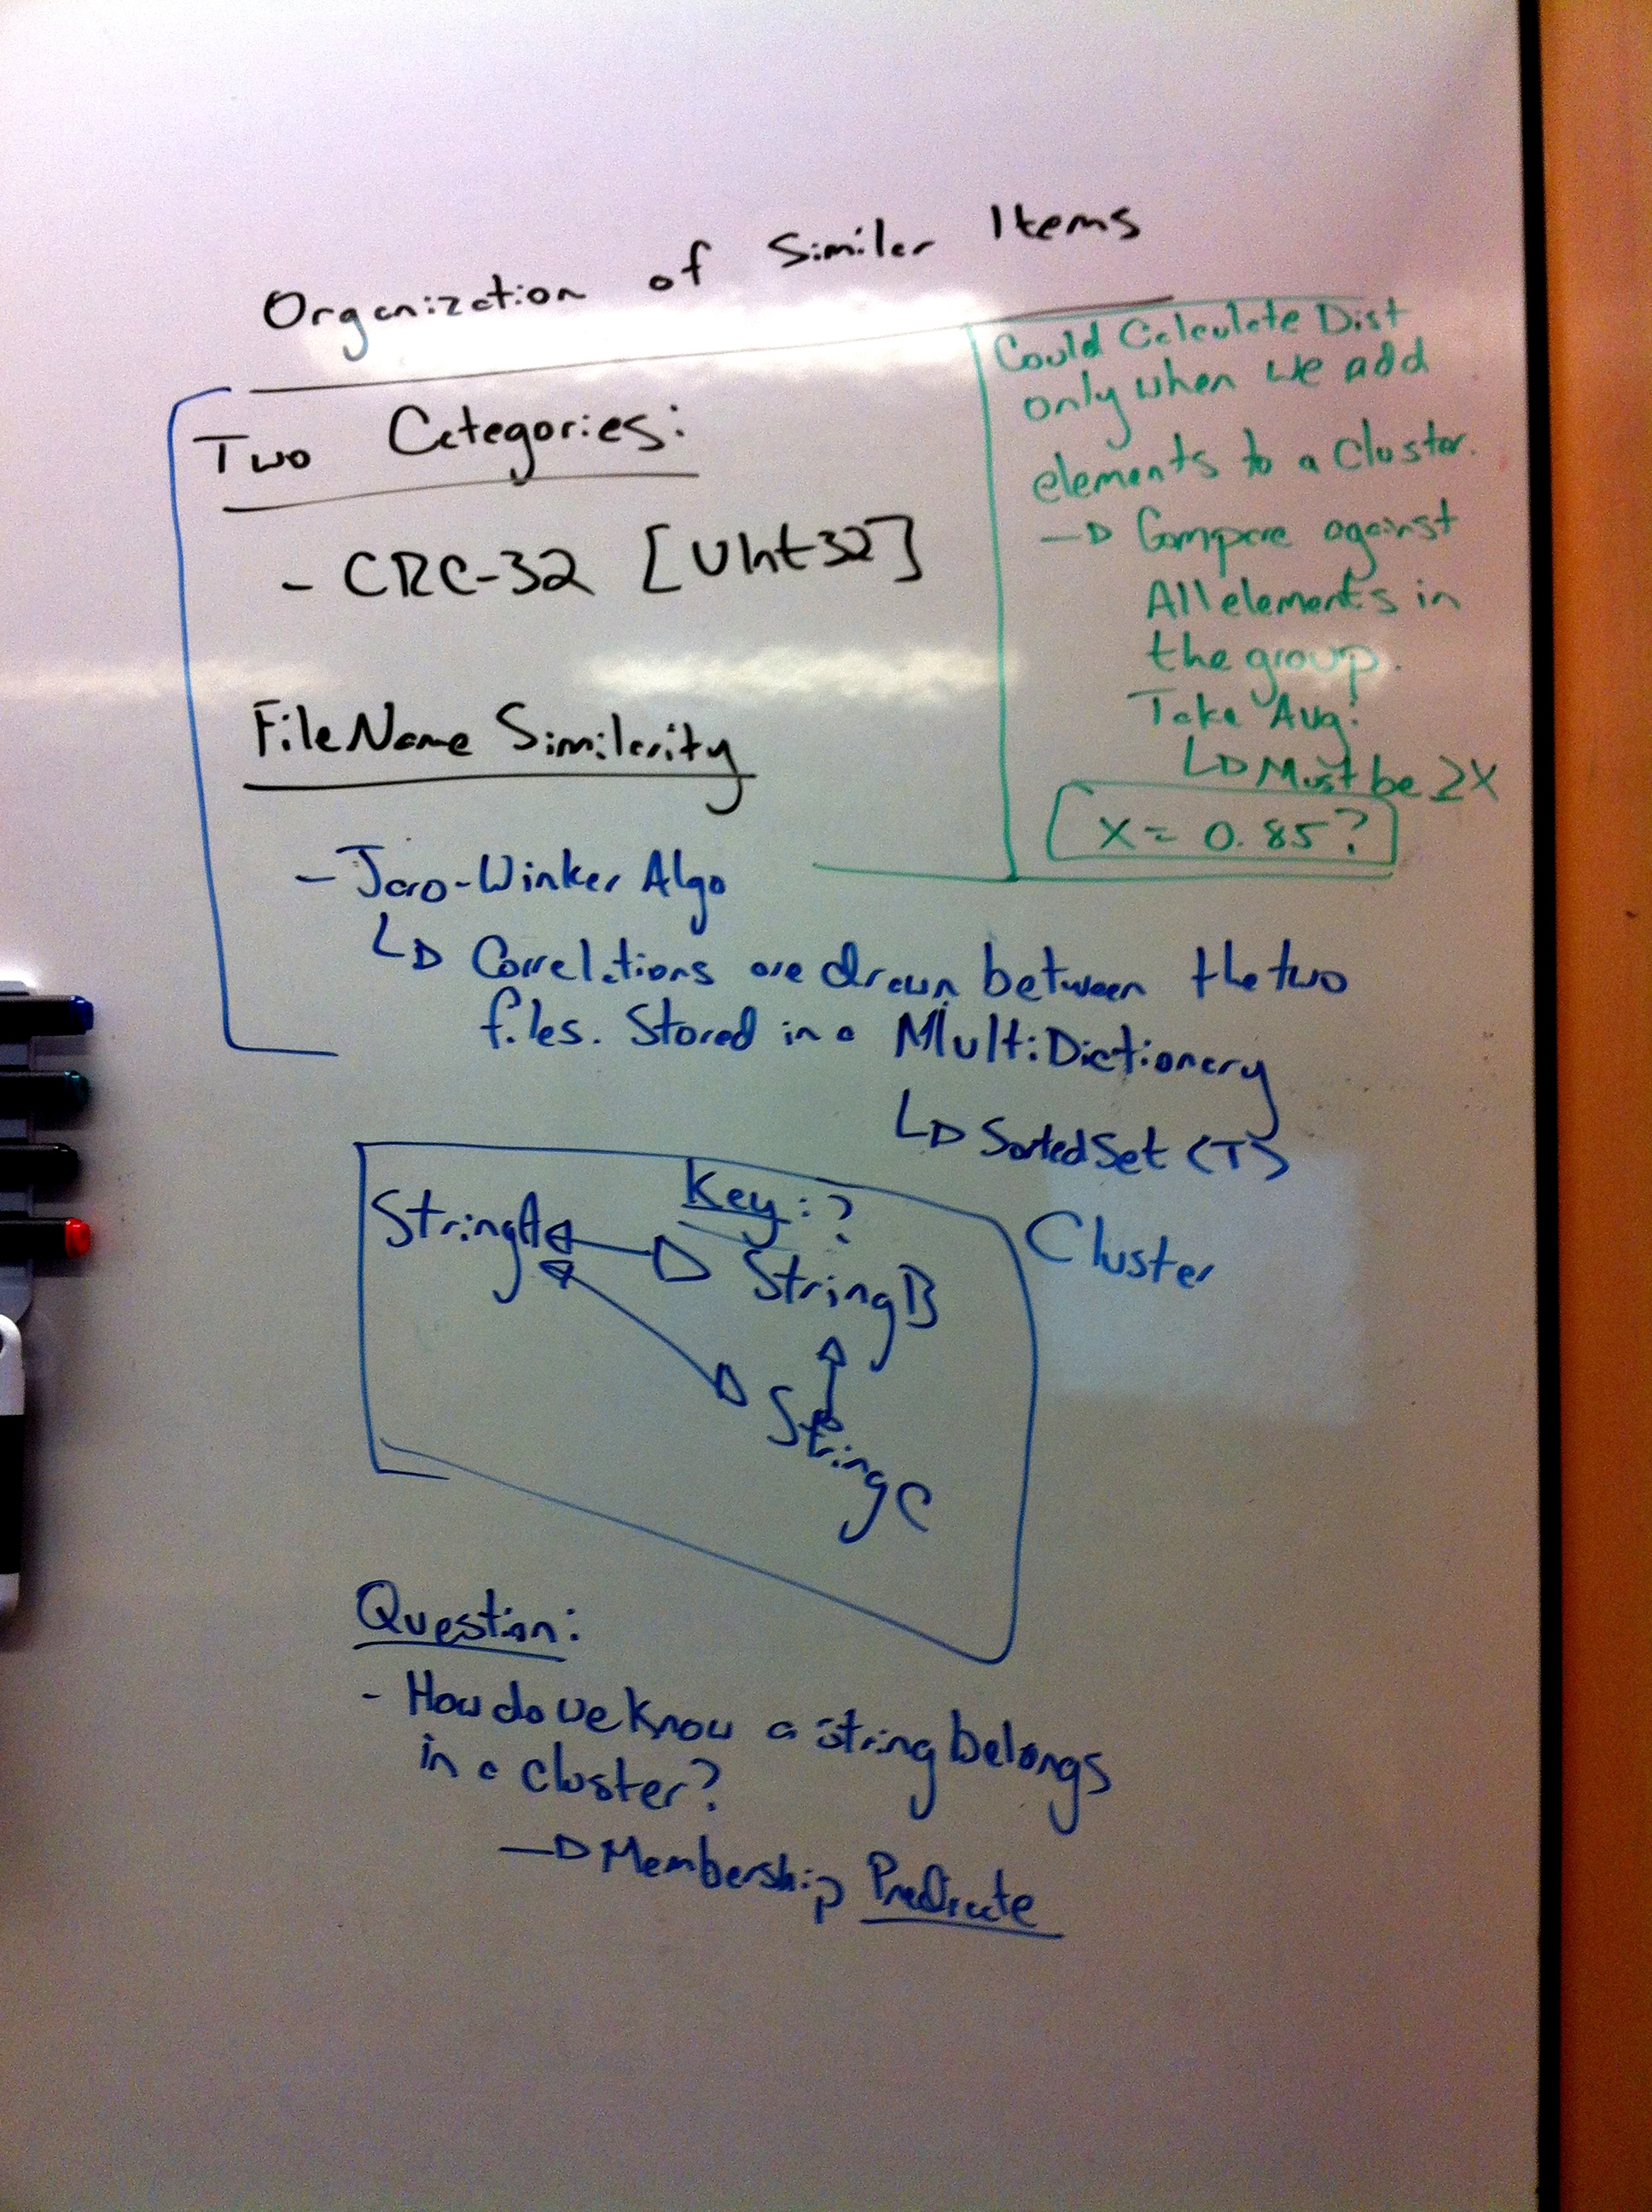 Organization of Similar Items
Two Categories:
- CRC-32 [UInt32]
FileName Similarity
- Jaro-Winker Algo
Correlations are drawn between the two
files. Stored in a MultiDictionary
SortedSet<T>
Could Calculate Dist
only when we add
elements to a Cluster.
Compare against
All elements in
the group.
Take Avg.
Must be ≥X
X = 0.85?
Key: ?
StringA
StringB
StringC
Cluster
Question:
- How do we know a string belongs
in a cluster?
Membership Predicate